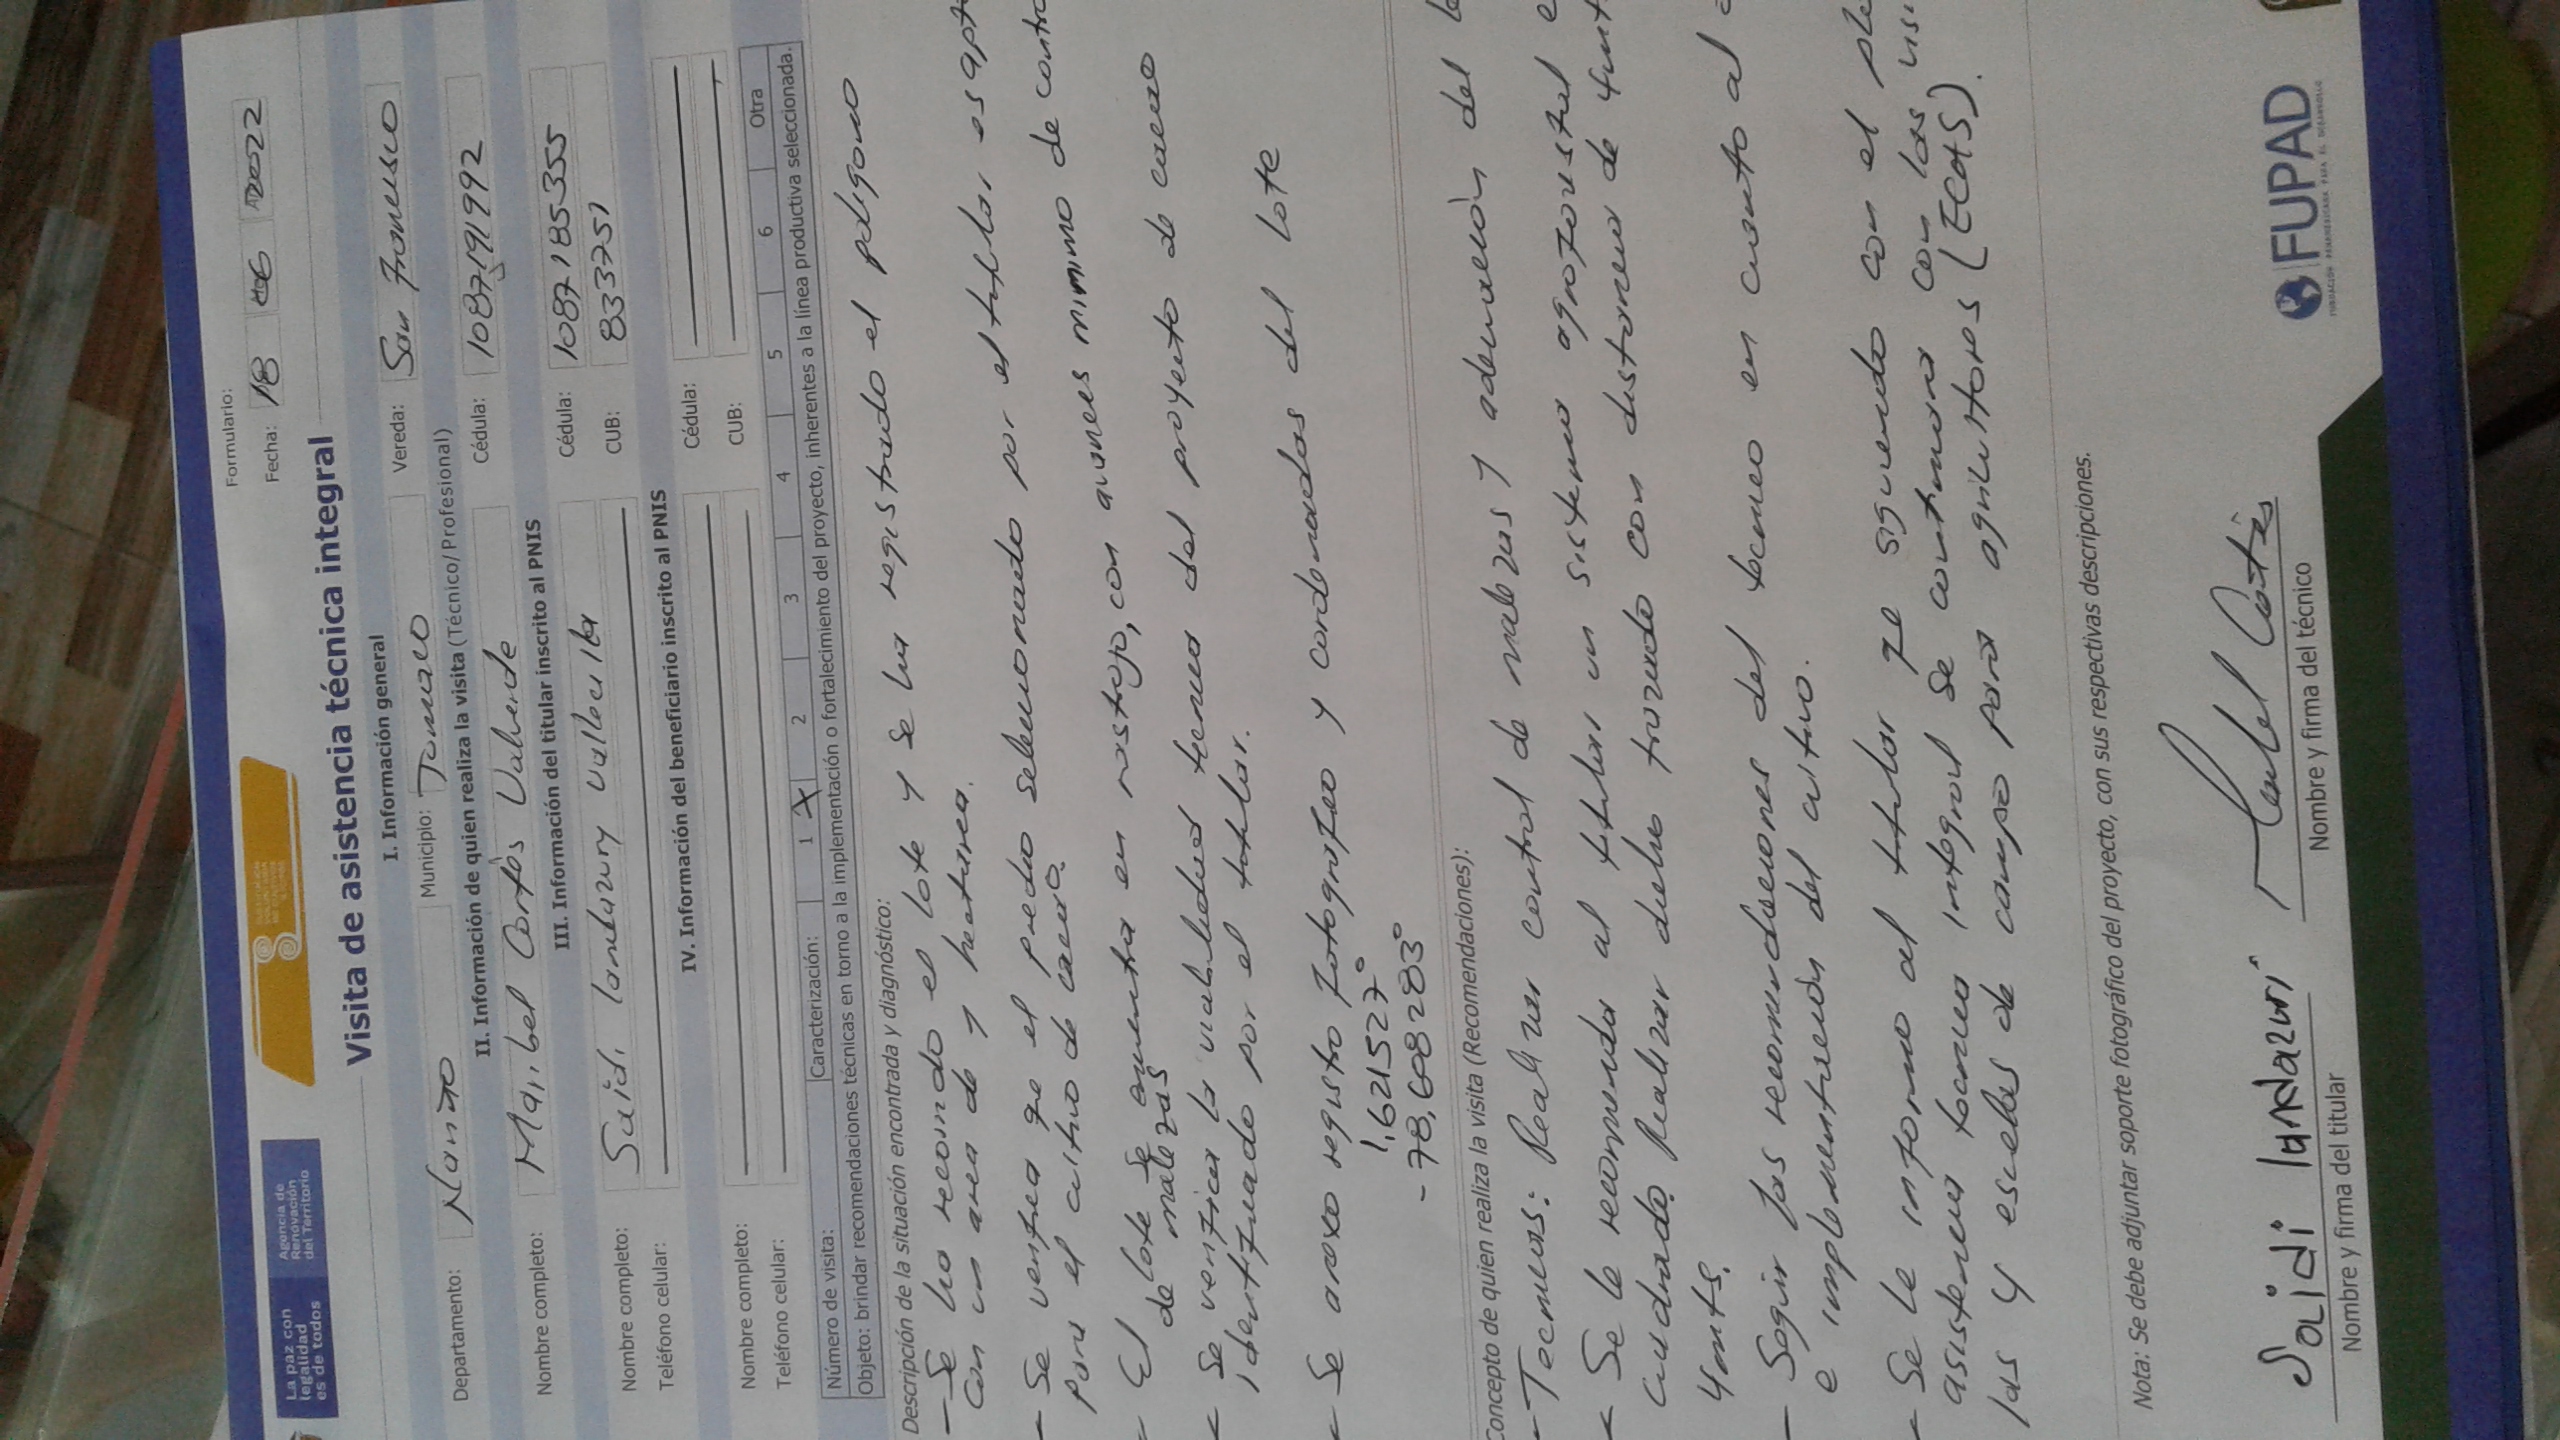 La paz con
legalidad
es de todos
Agencia de
Renovación
del Territorio
Formulario:
Fecha: 18 06 2022
Visita de asistencia técnica integral
I. Información general
Departamento: Nariño Municipio: Tumaco Veredra: San Francisco
II. Información de quien realiza la visita (Técnico/Profesional)
Nombre completo: Maribel Cortés Valverde Cédula: 1087191992
III. Información del titular inscrito al PNIS
Nombre completo: Saidi landazury vallecilla Cédula: 1087185355
Teléfono celular: CUB: 833751
IV. Información del beneficiario inscrito al PNIS
Nombre completo: Cédula:
Teléfono celular: CUB:
Número de visita: Caracterización: 1 X 2 3 4 5 6 Otra
Objeto: brindar recomendaciones técnicas en torno a la implementación o fortalecimiento del proyecto, inherentes a la línea productiva seleccionada.
Descripción de la situación encontrada y diagnóstico:
- Se ha recorrido el lote y se ha registrado el poligono
con un area de 1 hectarea.
- Se verifica qe el predio seleccionado por el titular es apto
para el cultivo de cacao.
- El lote se encuentra en rastrojo, con avances minimo de contro
de malezas
- Se verifica la viabilidad tecnica del proyecto de cacao
identificado por el titular.
- Se anexo registro fotografico y cordenadas del lote
1,621527°
-78,698283°
Concepto de quien realiza la visita (Recomendaciones):
- Tecnicas: Realizar control de malezas y adecuación del lo
- Se le recomienda al titular un sistema agroforestal e
cuadrado. Realizar dicho trazado con distancia de 4mt
4mts.
- Seguir las recomendaciones del tecnico en cuanto al
e implementación del cultivo.
- Se le informo al titular qe siguiendo con el pla
asistencia tecnica integral se continuara con las visi
las y escuelas de campo para agricultores (ECAS).
Nota: Se debe adjuntar soporte fotográfico del proyecto, con sus respectivas descripciones.
Saidi landazuri Maribel Cortés
Nombre y firma del titular Nombre y firma del técnico
FUPAD
FUNDACIÓN PANAMERICANA PARA EL DESARROLLO